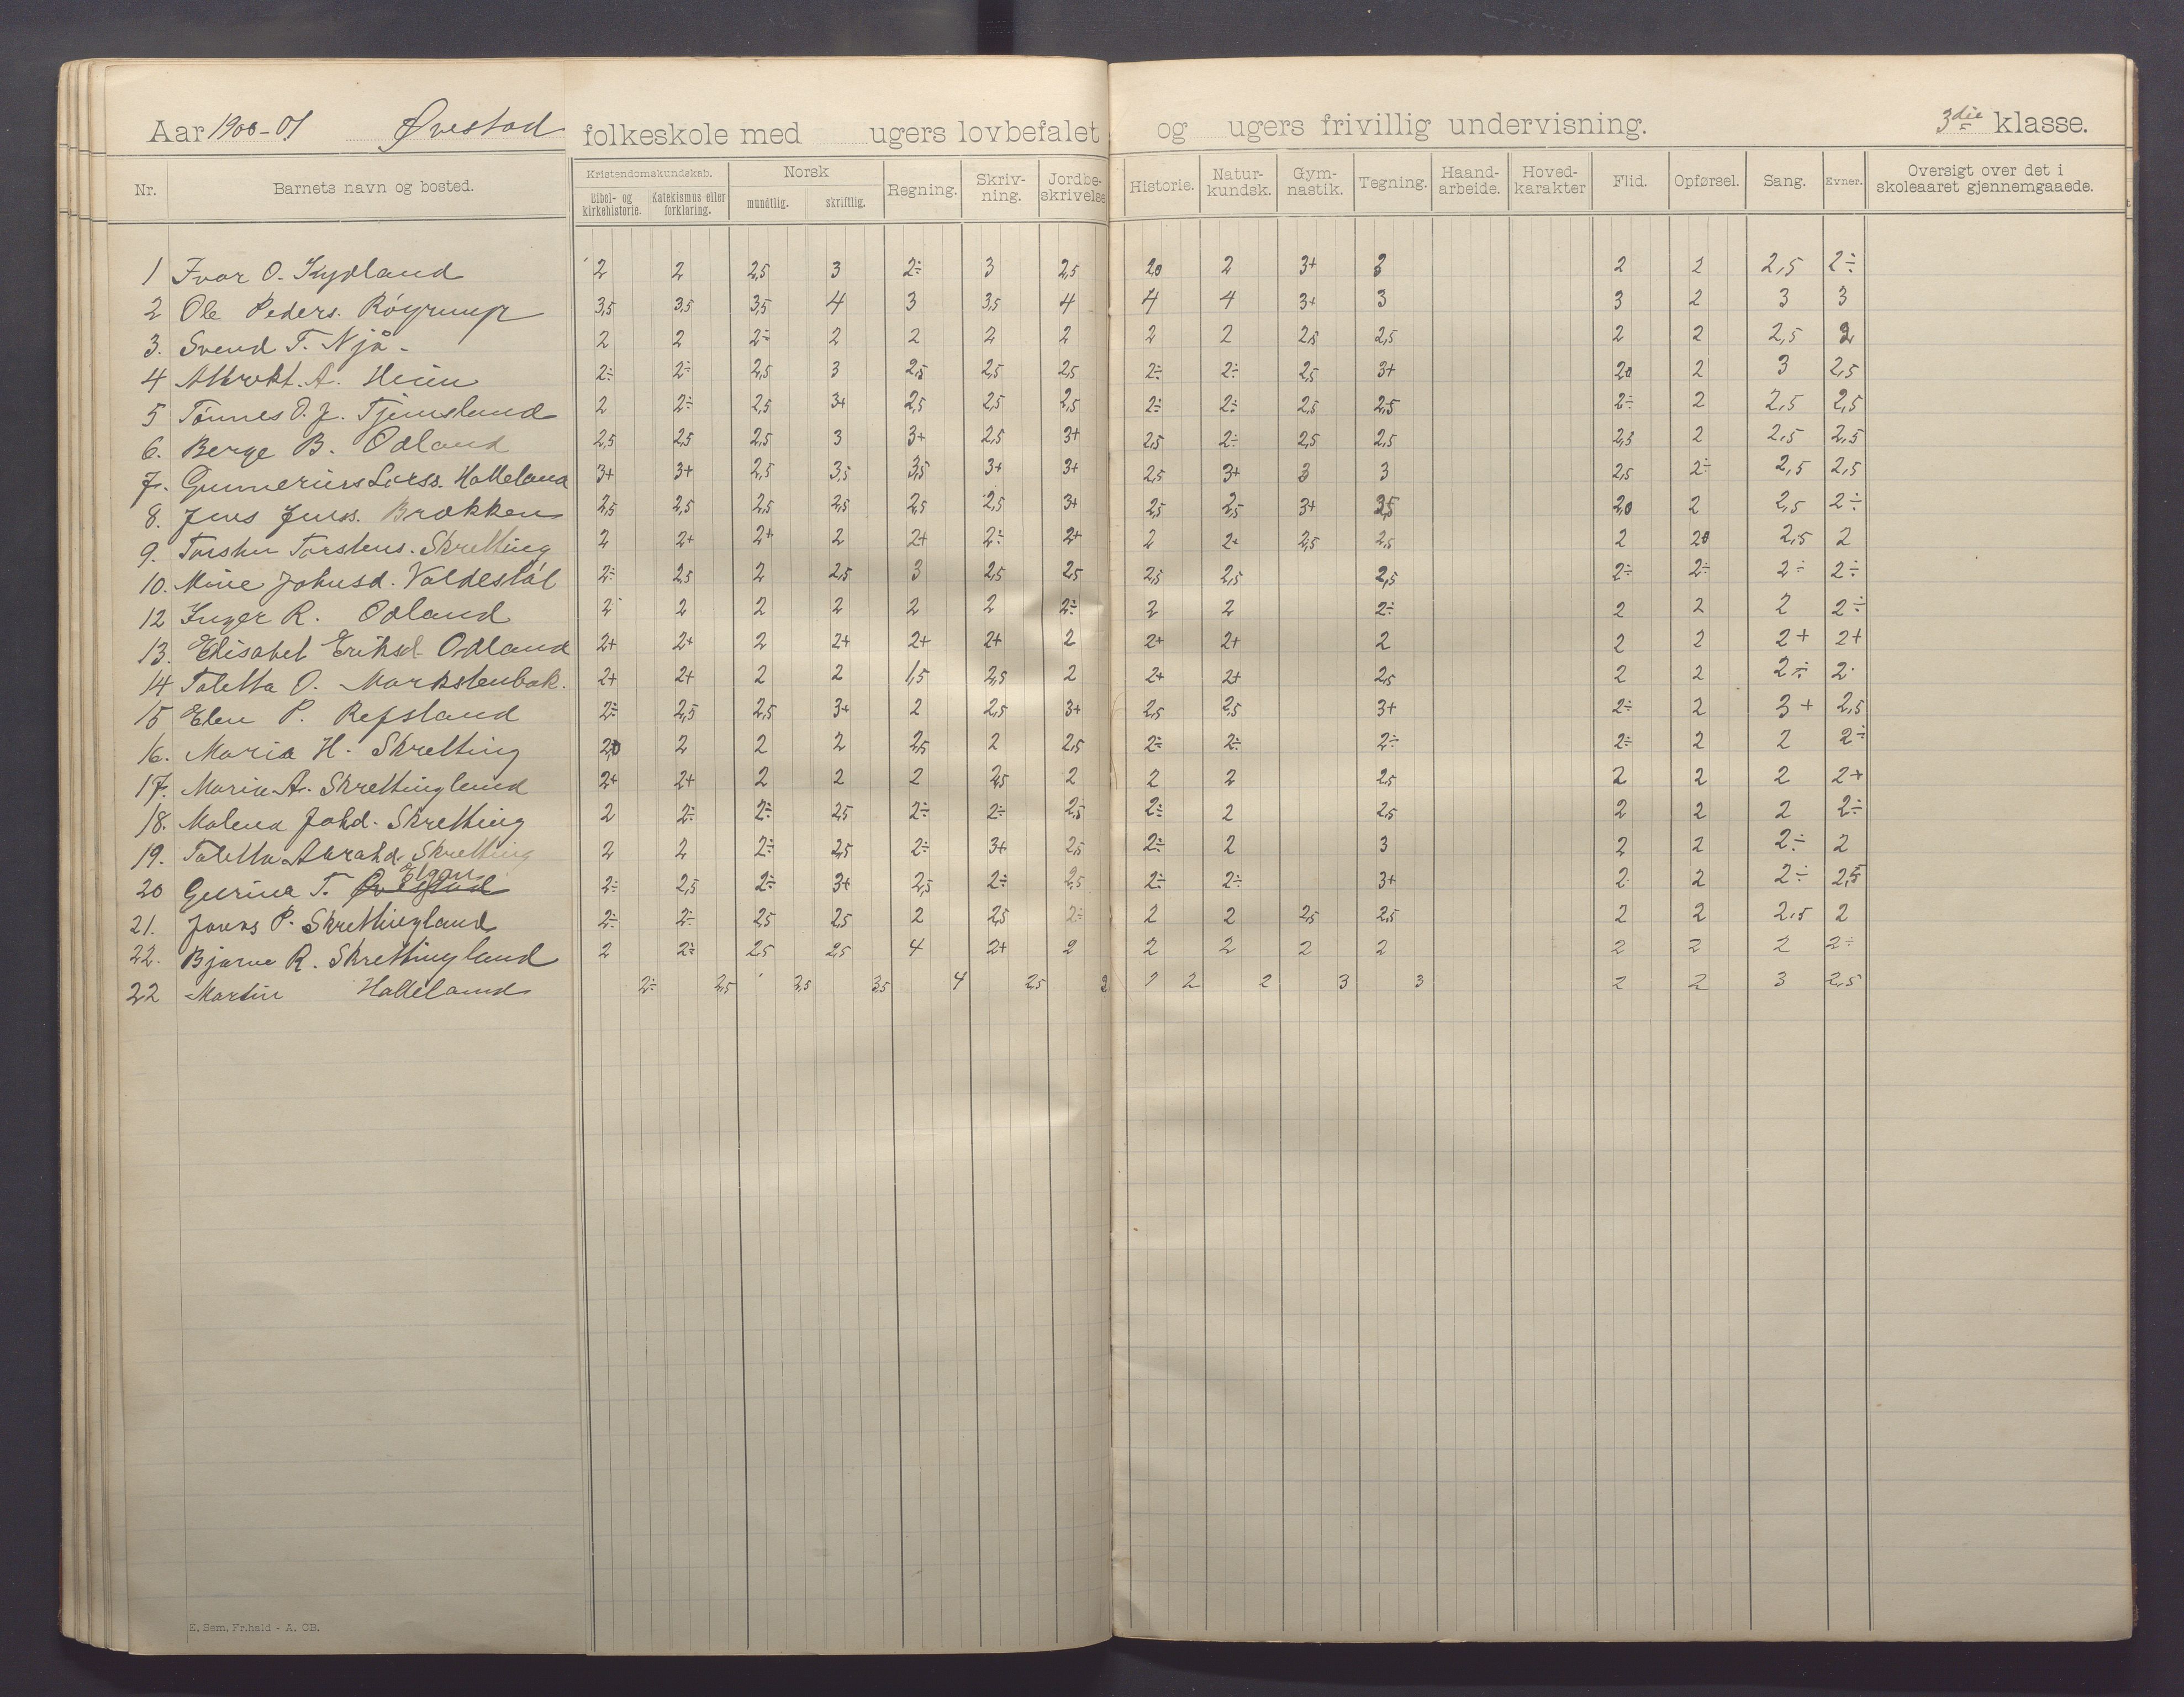 Aar 1900-01 Øvestad folkeskole med ugers lovbefalet og ugers frivillig undervisning. 3die klasse.
Nr. Barnets navn og bosted. Kristendomskundskab. Bibel- og kirkehistorie. Katekismus eller forklaring. Norsk mundtlig. skriftlig. Regning. Skriv-ning. Jordbe-skrivelse Historie. Natur-kundsk. Gym-nastik. Tegning. Haand-arbeide. Hoved-karakter Flid. Opførsel. Sang. Evner. Oversigt over det i skoleaaret gjennemgaaede.
1 Ivar O. Kydland 2 2 2,5 3 2÷ 3 2,5 2,0 2 3+ 3 2 2 2,5 2÷
2 Ole Peders. Röyrump 3,5 3,5 3,5 4 3 3,5 4 4 4 3+ 3 3 2 3 3
3. Svend T. Njå - 2 2 2÷ 2 2 2 2 2 2 2,5 2,5 2 2 2,5 2
4 A. Heien 2÷ 2÷ 2,5 3 2,5 2,5 2,5 2÷ 2÷ 2,5 3+ 2,0 2 3 2,5
5 Tönnes O. J. Tjemsland 2 2÷ 2,5 3+ 2,5 2,5 2,5 2÷ 2÷ 2,5 2,5 2÷ 2 2,5 2,5
6. Berge B. Odland 2,5 2,5 2,5 3 3+ 2,5 3+ 2,5 2÷ 2,5 2,5 2,5 2 2,5 2,5
7. Gunnerius Larss. Halleland 3+ 3+ 2,5 3,5 3,5 3+ 3+ 2,5 3+ 3 3 2,5 2÷ 2,5 2,5
8. Jens Jenss. Brækken 2,5 2,5 2,5 2,5 2,5 2,5 3+ 2,5 2,5 3+ 3,5 2,0 2 2,5 2÷
9. Torsten Torstens. Skretting 2 2+ 2+ 2 2+ 2÷ 2+ 2 2+ 2,5 2,5 2 20 2,5 2
10. Mine Johnsd. Valdestøl 2÷ 2,5 2 2,5 3 2,5 2,5 2,5 2,5 2,5 2÷ 2÷ 2÷ 2÷
12 Inger R. Odland 2 2 2 2 2 2 2÷ 2 2 2÷ 2 2 2 2÷
13. Elisabet Eriksd. Odland 2+ 2+ 2 2+ 2+ 2+ 2 2+ 2+ 2 2 2 2+ 2+
14 Taletta O. Markstenbak. 2+ 2+ 2 2 1,5 2,5 2 2+ 2+ 2,5 2 2 2÷ 2
15 Elen P. Refsland 2÷ 2,5 2,5 3+ 2 2,5 3+ 2,5 2,5 3+ 2÷ 2 3+ 2,5
16. Maria H. Skretting 2,0 2 2 2 2,5 2 2,5 2÷ 2÷ 2÷ 2÷ 2 2 2÷
17. Marie A. Skrettingland 2+ 2+ 2 2 2 2,5 2 2 2 2,5 2 2 2 2+
18. Malena Johd. Skretting 2 2÷ 2÷ 2,5 2÷ 2÷ 2,5 2÷ 2 2,5 2 2 2 2÷
19. Taletta Abrahd. Skretting 2 2 2÷ 2,5 2÷ 3+ 2,5 2÷ 2 3 2 2 2÷ 2
Elgan
20 Gurina T. Øvestad 2÷ 2,5 2÷ 3+ 2,5 2÷ 2,5 2÷ 2÷ 3+ 2 2 2÷ 2,5
21. Jonas P. Skrettingland 2÷ 2÷ 2,5 2,5 2 2,5 2÷ 2 2 2,5 2,5 2 2 2,5 2
22. Bjarne R. Skrettingland 2 2÷ 2,5 2,5 4 2+ 2 2 2 2 2 2 2 2 2÷
22 Martin Halleland 2÷ 2,5 2,5 3,5 4 2,5 2 2 2 3 3 2 2 3 2,5
E. Sem. Fr.hald - A. CB.